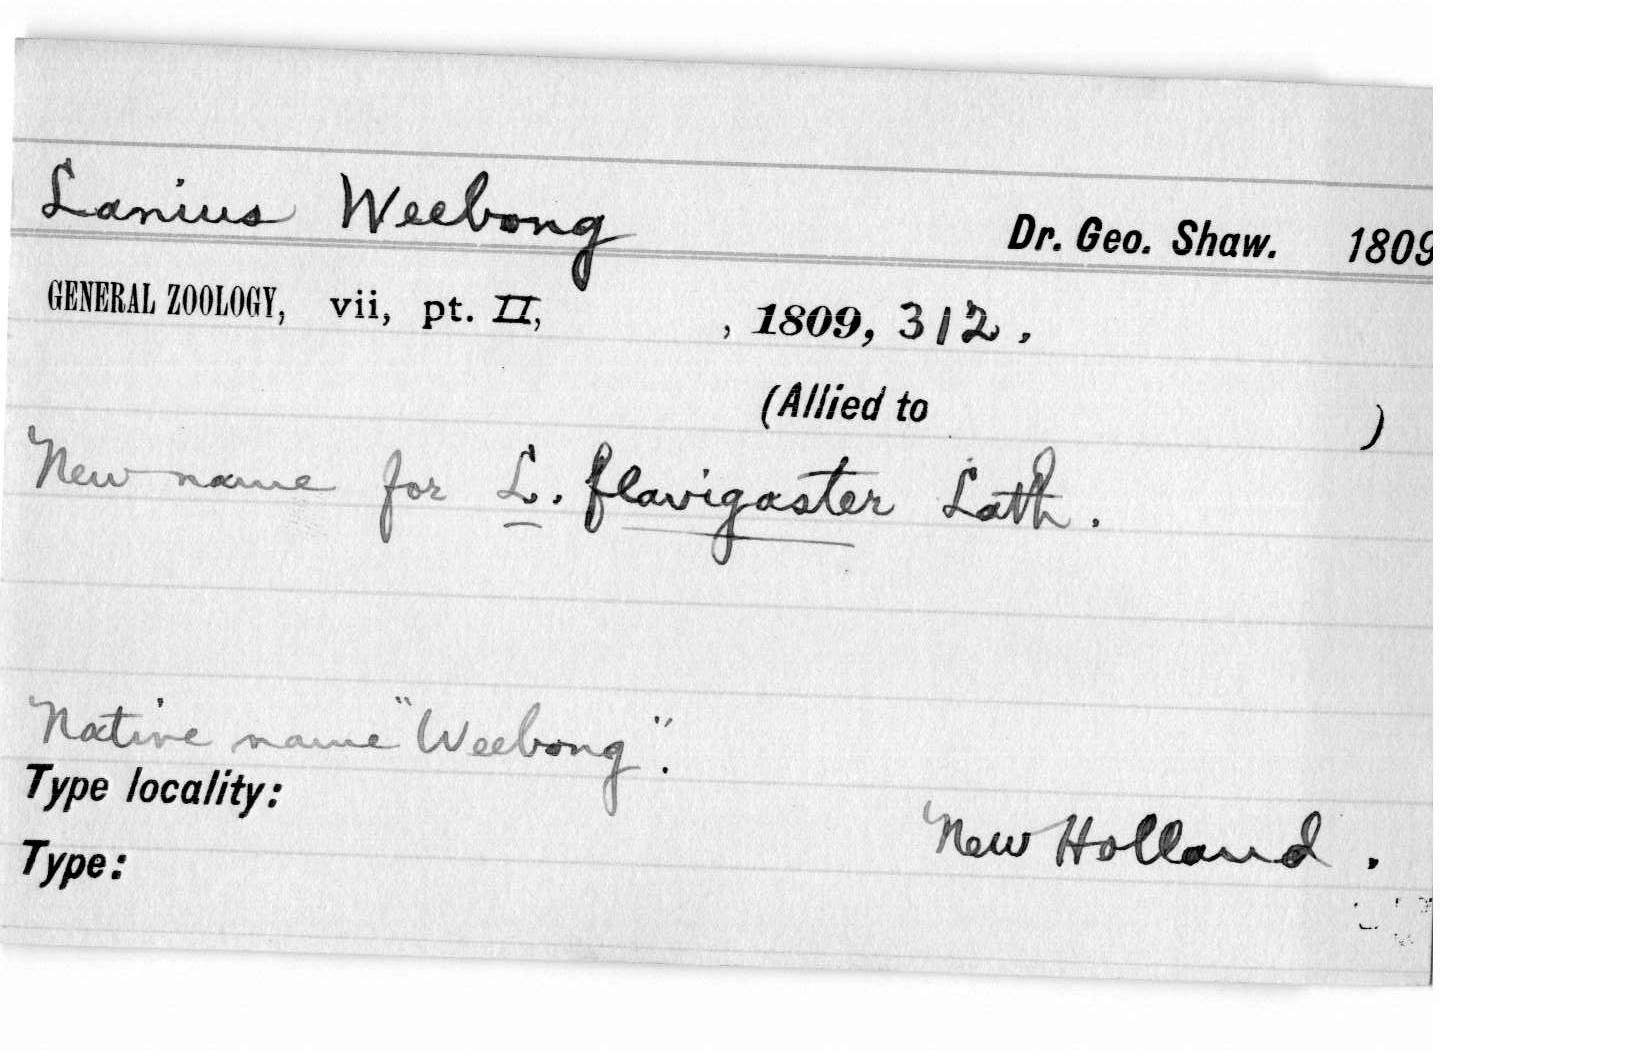 Lanius Weebong Dr. Geo. Shaw. 1809
GENERAL ZOOLOGY, vii, pt. II, , 1809, 312.
(Allied to )
New name for L. flavigaster Lath.
Native name "Weebong".
Type locality:
New Holland.
Type: